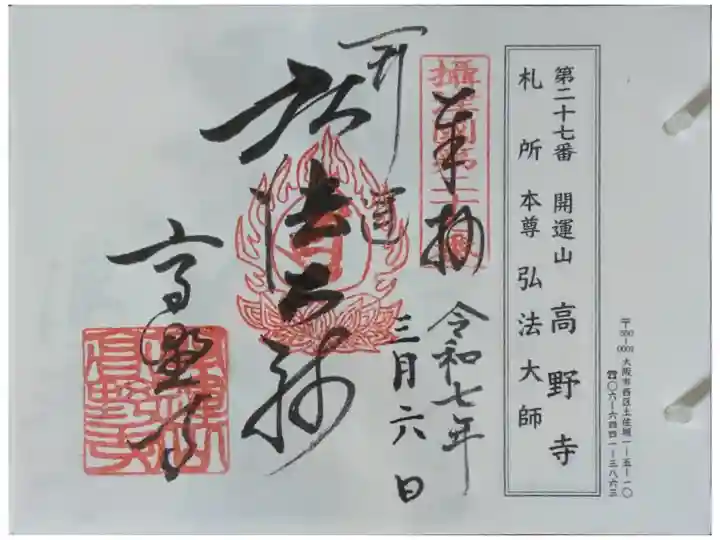 第二十七番 開運山 高野寺
札所 本尊 弘法大師
〒550-0001 大阪市西区土佐堀一-五-一〇
☎〇六-六四四一-三八六三
奉拝
令和七年
三月六日
弘法大師
高野寺